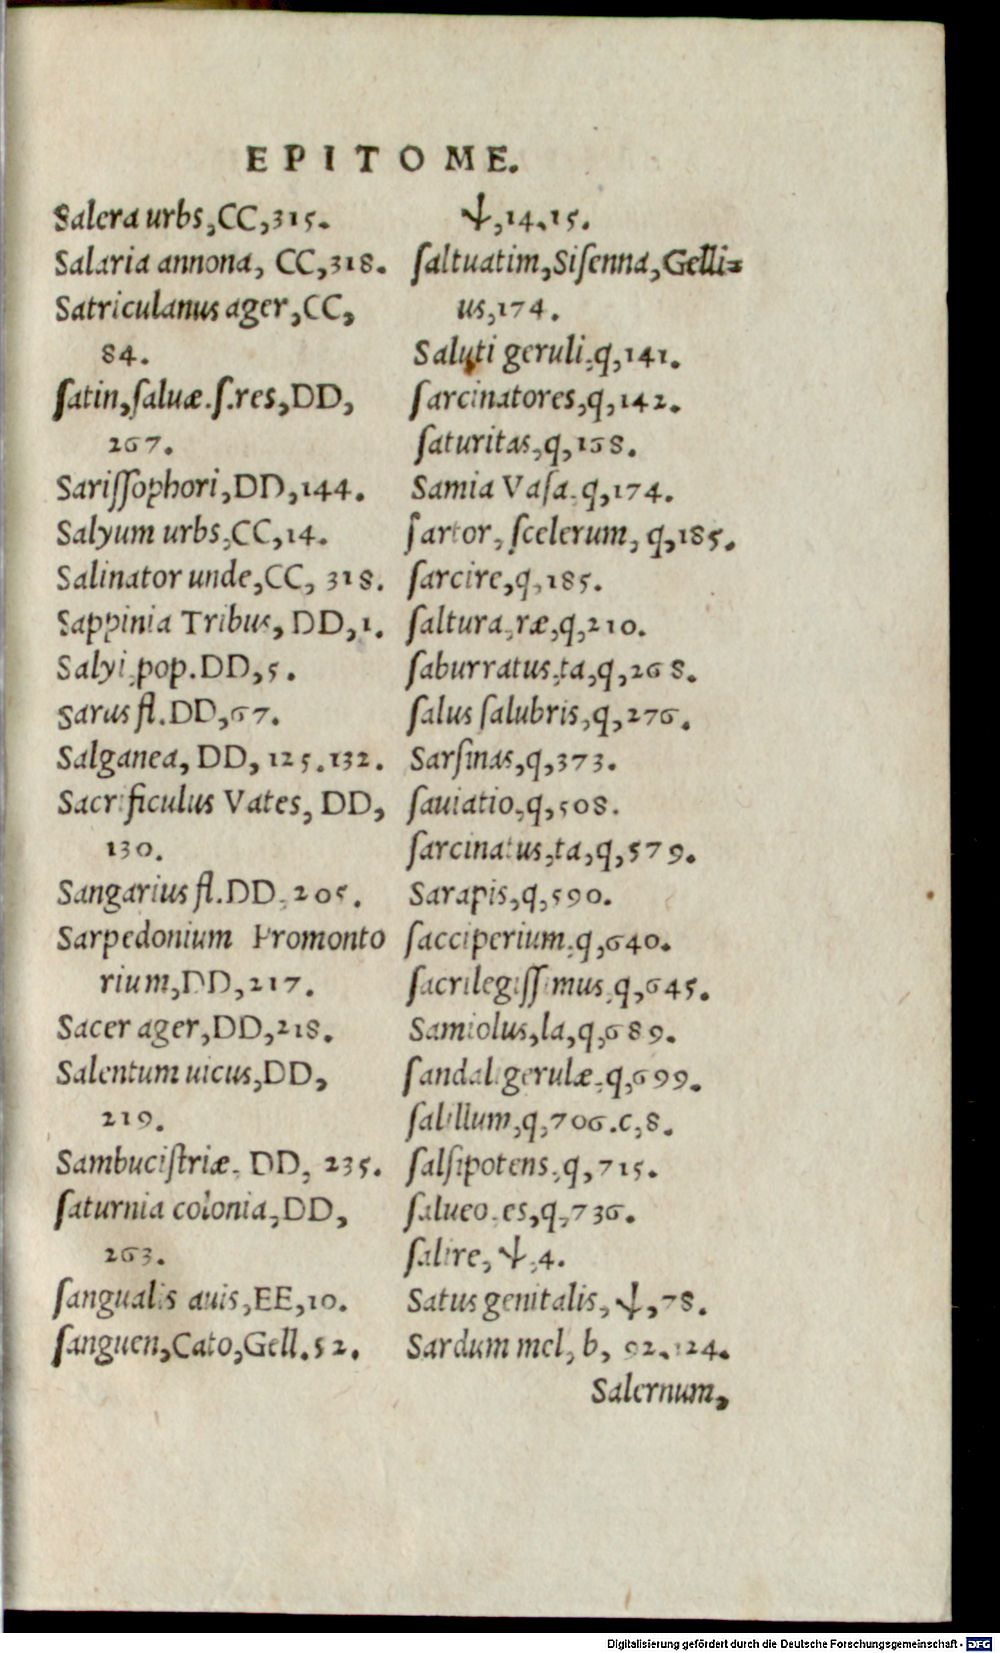 EPITOME.
Salera urbs,CC,315.
Salaria annona, CC,318.
Satriculanus ager,CC,
84.
ſatin,ſaluæ.ſ.res,DD,
267.
Sariſſophori,DD,144.
Salyum urbs,CC,14.
Salinator unde,CC, 318.
Sappinia Tribus, DD,1.
Salyi,pop.DD,5.
Sarus fl.DD,67.
Salganea, DD, 125.132.
Sacrificulus Vates, DD,
130.
Sangarius fl.DD,205.
Sarpedonium Promonto
rium,DD,217.
Sacer ager,DD,218.
Salentum uicus,DD,
219.
Sambuciſtriæ, DD, 235.
ſaturnia colonia,DD,
263.
ſangualis auis,EE,10.
ſanguen,Cato,Gell.52.
ψ,14.15.
ſaltuatim,Siſenna,Gelli=
us,174.
Saluti geruli,q,141.
ſarcinatores,q,142.
ſaturitas,q,158.
Samia Vaſa,q,174.
ſartor, ſcelerum, q,185.
ſarcire,q,185.
ſaltura,ræ,q,210.
ſaburratus,ta,q,268.
ſalus ſalubris,q,276.
Sarſinas,q,373.
ſauiatio,q,508.
ſarcinatus,ta,q,579.
Sarapis,q,590.
ſacciperium,q,640.
ſacrilegiſſimus,q,645.
Samiolus,la,q,689.
ſandaligerulæ,q,699.
ſalillum,q,706.c,8.
ſalſipotens,q,715.
ſalueo,es,q,736.
ſalire, ψ,4.
Satus genitalis, ψ,78.
Sardum mel, b, 92.124.
Salernum,
Digitalisierung gefördert durch die Deutsche Forschungsgemeinschaft - DFG